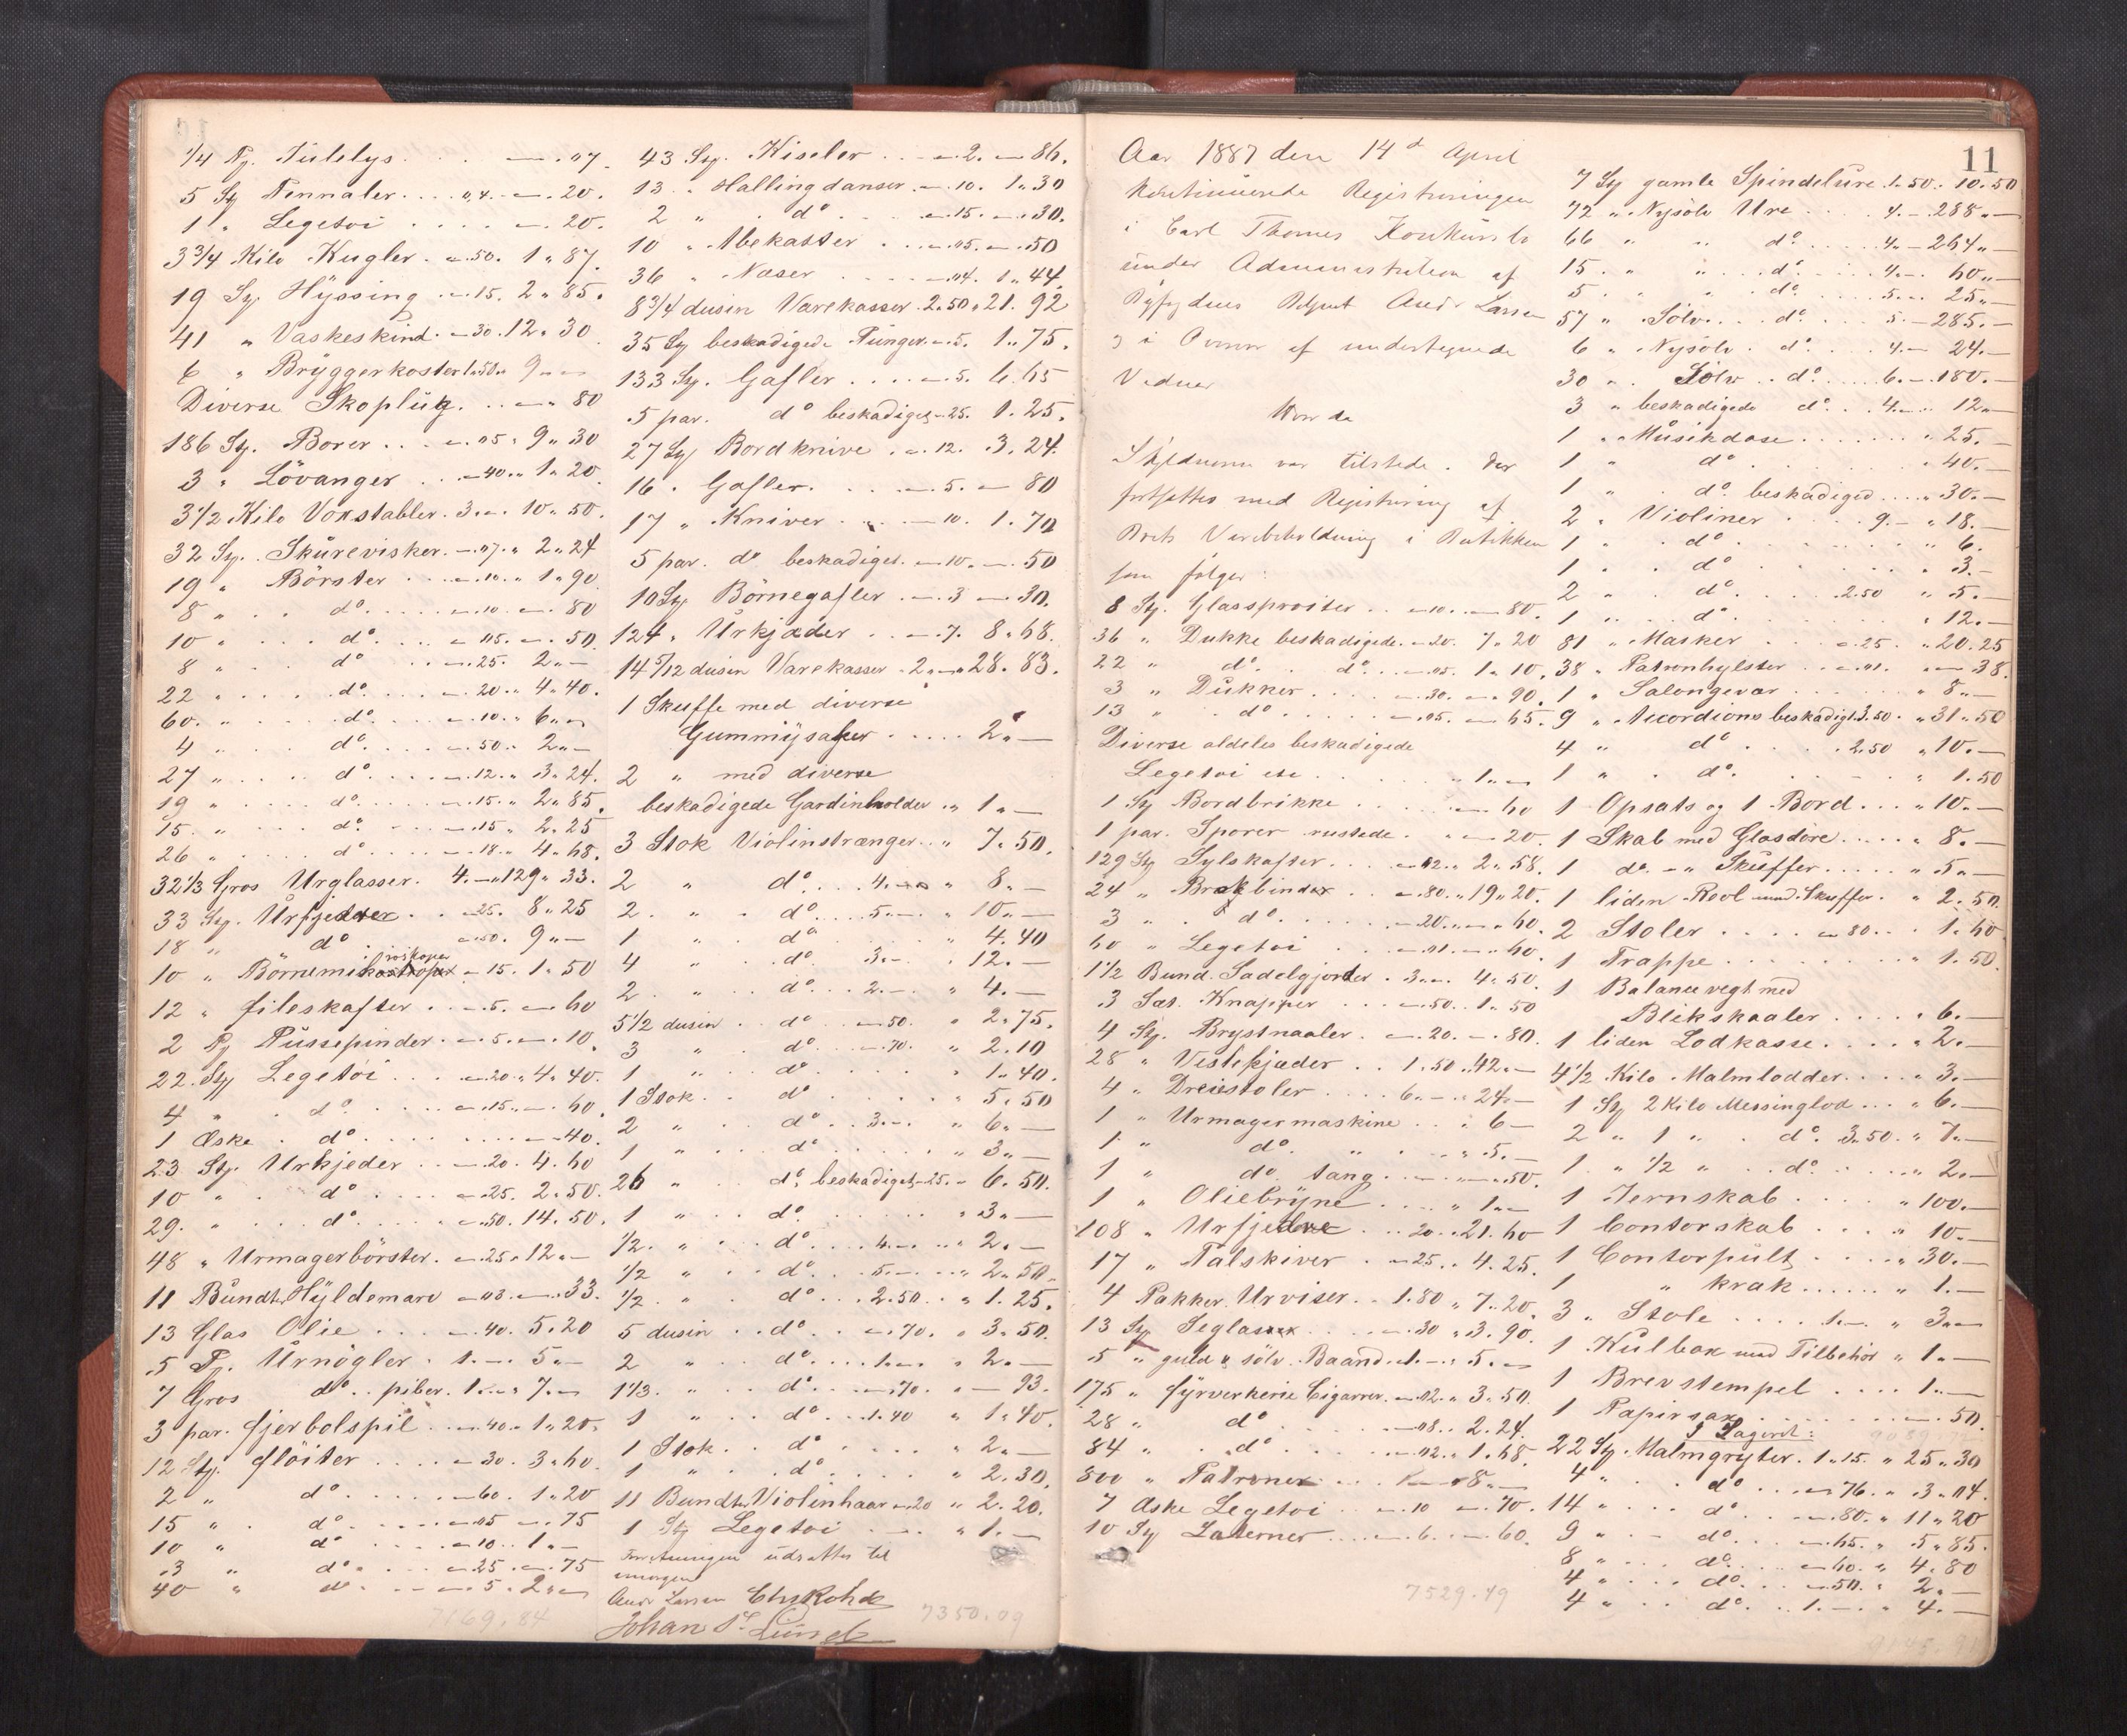 1/4 Pj. Tülelys. . . . — . 07
5 Stj Pennaler. . . . „ 4. — . 20.
1 „ Legetoi . . . . — . 20.
3 3/4 Kilo Kugler . — . 50. 1 „ 87.
19 Stj. Hyssing . — . 15. 2 „ 85.
41 „ Vaskeskind . — 30. 12 „ 30
6 „ Bryggerkoster 1 „ 50 „ 9 „ —
Diverse Skoplüg. . . — „ 80
186 Stj. Borer . . . — „ 05 „ 9 „ 30
3 „ Lövanger . . . — 40 „ 1 „ 20
3 1/2 Kilo Voxstabler . 3 „ — . 10 „ 50.
32 Stj. Skurevisker. — „ 07 „ 2 „ 24
19 „ Börster . . . — „ 10 „ 1 „ 90
8 „ . . do . . . — „ 10 . — „ 80
10 „ . . do . . . — „ 05. — „ 50.
8 „ . . do . . . — „ 25. 2 „ —
22 „ . . do . . . — 20 „ 4 „ 40.
60 „ . . do . . . — „ 10 „ 6 „ —
4 „ . . do . . . — 50 „ 2 „ —
27 „ . . do . . . — „ 12 „ 3 „ 24.
19 „ . . do . . . — „ 15 „ 2 „ 85.
15 „ . . do . . . — „ 15 „ 2 „ 25
26 „ . . do . . . — „ 18 „ 4 „ 68.
32 1/3 Gros Urglasser. 4. — „ 129 „ 33.
33 Stj. Urfjedrer . . — 25. 8 „ 25
18 „ do . . — „ 50. 9 „ —
10 „ Börnemikroskoper — 15. 1 „ 50
12 „ fileskafter . . — „ 5. — „ 60
2 Pj Püssepinder . — „ 5. — „ 10.
22 Stj Legetöi . . . — „ 20 „ 4 „ 40.
4 „ . do . . . — „ 15 „ — . 60.
1 Æske . do . . . . . — 40.
23 Stj. Urkjeder . . — 20. 4. 60
10 „ . do . . . — 25. 2 „ 50.
29. „ . . do . . . — 50. 14. 50.
48 „ Urmagerbörster. — 25 „ 12 „ —
11 Bündter Hyldemarv — 03 — „ 33.
13 Glas Olie . . . — „ 40. 5 „ 20
5 Pj. Urnögler . 1. — „ 5 „ —
7 Gros do . . piber. 1 „ — 7 „ —
3 par. fjerbolspil . . — 40 „ 1 „ 20.
12 Stj. flöiter . . . — „ 30. 3 „ 60.
2 „ do . . . — 60. 1 „ 20
15 „ . do . . . — „ 05 — „ 75
10 „ do . . . — „ 10. 1 „ —
3 „ do . . . — . 25 . — „ 75
40 „ do . . . — „ 5 „ 2 „ —
7169.84
43 Stj. Kiseler . . — „ 2. — „ 86.
13 „ Hallingdanser. — „ 10. 1 „ 30
2 „ . do . . . — „ 15. — „ 30.
10 „ Abekatter . . — „ 05. — „ 50
36 „ Næser . . . — „ 04. 1 „ 44.
8 3/4 dusin Varekasser. 2 „ 50 „ 21. 92
35 Stj beskadigede Pünger. — „ 5. 1 „ 75.
133 Stj. Gafler . . . — „ 5. 6. 65
5 par. do beskadiget — 25. 1. 25.
27 Stj Bordknive . — „ 12. 3. 24.
16 „ Gafler. . . . — „ 5. — 80
17 „ Kniver . . . — „ 10. 1. 70
5 par. do beskadiget. — 10. — „ 50
10 Stj Börnegafler . — „ 3 — „ 30.
124 „ Urkjæder . . — „ 7. 8 „ 68.
14 5/12 dusin Varekasser . 2 „ — „ 28. 83.
1 Skuffe med diverse
Gummysager . . . . 2 „ —
2 „ med diverse
beskadigede Gardinholder „ 1 „ —
3 Stok Violinstrænger . „ 7. 50.
2 „ do . . . 4. — „ 8 „ —
2. „ . do . . . 5. — „ 10 „ —
1 „ . do . . . „ 4. 40
4 „ . do . . 3. — „ 12. —
2 „ . do . . 2. — „ 4. —
5 1/2 dusin . . do . . — 50. „ 2 „ 75.
3 „ . do . . — „ 70. „ 2. 10
1 „ . do . . . „ 1 „ 40.
1 Stok . . do . . . „ 5. 50
2 „ . do . . 3. — „ 6 „ —
1 „ . do . . . „ 3 „ —
26 „ . . do. beskadiget — 25 „ 6. 50.
1 „ . . do . . . „ 3 „ —
1/2. „ . . do . . . 4. — „ 2. —
1/2 „ . do . . . 5. — „ 2 „ 50.
1/2. „ . do . . . 2. 50. „ 1. 25.
5 dusin . . do . . — „ 70. „ 3 „ 50.
2 „ . do . . . 1. — „ 2. —
1 1/3. „ . . do . . . — „ 70. „ — 93.
1 „ . . do . . 1. 40 „ 1 „ 40.
1 Stok . . do . . . „ 2 „ —
1 „ . do . . . „ 2. 30.
11 Bundter Violinhaar — 20 „ 2. 20.
1 Stj Legetoi . . . „ 1. —
Forretningen udsattes til
imorgen
Andr Larsen Chr Rohde
Johan P. Lund
7350.09
Aar 1887 den 14de April
kontinuerede Registreringen
i Carl Thomes Konkursbo
under Administration af
Byfogdens Andr Larsen
og i Overvær af undertegnede
Vidner
Hvorda
Skyldneren var tilstede. Der
fortsattes med Registrering af
Boets Varebeholdning i Butikken
som følger:
8 Stj. Glassproiter . . — 10. — 80.
36 „ Dukke beskadigede. — 20. 7 „ 20
22 „ do. . do . . — „ 05. 1 „ 10.
3 „ Dükker . . . — „ 30. — „ 90.
13 „ . do . . . — „ 05. — 65.
Diverse aldeles beskadigede
Legetoi etc . . . . „ 1 „ —
1 Stj Bordbrikke . . . — 60
1 par. Sporer rustede. . — 20.
129 Stj Sylskafter. . . — „ 02. „ 2 „ 58.
24 „ Brokbinder . . — 80. „ 19 „ 20.
3 „ do . . . — 20. „ — 60.
60 „ Legetoi . . . — „ 01. — „ 60.
1 1/2 Bund. Sadelgjorder . 3 „ — 4 „ 50.
3 Sæt. Knapper . . — 50. 1 „ 50
4 Stj. Brystnaaler. — 20. — „ 80.
28 „ Vestkjæder . . 1. 50. 42 „ —
4 „ Dreiestoler . . 6. — „ 24 „ —
1 „ Urmagermaskine . . „ 6 —
1 „ do. . . „ 5. —
1 „ do. tang . . . — „ 50.
1 „ Oliebryne . . . „ 1 „ —
108 „ Urfjedre . . . 20. „ 21. 60
17 „ Talskiver . — 25. „ 4. 25.
4 Pakker. Urviser. . 1. 80 „ 7 „ 20.
13 Stj. Seglasser . . — „ 30 „ 3. 90.
5 „ guld & sölv. Baand. 1. — „ 5 „ —
175 „ fyrverkerie Cigarrer. — „ 02. „ 3 „ 50.
28 „ do . . . — „ 08. . 2. 24.
84 „ . do . . . — „ 02. „ 1. 68.
800 „ Patroner . . . 1 „ — 8 „ —
7 Æske Legetoi . . — „ 10 — „ 70.
10 Stj Laterner . . . — „ 6. — „ 60.
7529.49
11
7 Stj gamle Spindelure 1. 50. 10. 50
72 „ Nysölv Ure . . . 4. — 288 „ —
66 „ „ do . . . 4. — 264 „ —
15. „ „ do . . . 4. — 60 „ —
5 „ „ do . . . 5. — 25 „ —
57 „ Sölv . . do . . . 5. — 285. —
6 „ Nysölv . do . . . 4. — 24. —
30 „ Sölv . . do . . . 6. — 180. —
3 „ beskadigede do . . 4. — „ 12 „ —
1 „ Müsikdose . . . . „ 25. —
1 „ do . . . . „ 40. —
1 „ do. beskadiged . . . „ 30. —
2 „ Violiner . . . 9. — „ 18. —
1 „ . do . . . . „ 6. —
1 „ . do . . . . „ 3. —
2 „ . do . . . 2.50 „ 5. —
1 „ . do . . . . „ 12. —
81 „ Masker . . — 25. „ 20. 25
38 „ Patronhylster . . — „ 01. „ — 38.
1 „ Salongevær . . . . „ 8 „ —
9 „ Accordions beskadigt. 3. 50. „ 31 „ 50
4 „ do . . . . 2. 50 „ 10. —
1 „ do. . . . . „ 1. 50
1 Opsats og 1 Bord . . . „ 10. —
1 Skab med Glasdöre . . . „ 8. —
1 do. — „ Sküffer . . . . „ 5 „ —
1 liden Reol med Skuffer. „ 2. 50.
2 Stoler . . . . — 80. . . 1. 60
1 Trappe . . . . . „ 1. 50.
1 Balancevegt med
Blikskaaler . . . . „ 6. —
1 liden Lodkasse . . . . „ 2. —
4 1/2 Kilo Malmlodder . . . „ 3. —
1 Stj 2 Kilo Messinglod . . . „ 6. —
2 „ 1 „ . do. 3. 50. „ 7. —
1 „ 1/2 „ . do. . . . „ 2. —
1 Jernskab . . . . „ 100. —
1 Contorskab . . . „ 10. —
1 Contorpült . . . . „ 30. —
1 „ krak . . . . . „ 1. —
3 „ Stole . . . . 1. — „ 3 „ —
1 Külbox med Tilbehör „ 1. —
1 Brevstempel . . . . 1 „ —
1 Papirsax . . . . — „ 50.
I Lageret: 9089
22 Stj. Malmgryter. 1 „ 15. „ 25 „ 30
4 „ . do . . — 76. „ 3 „ 04.
14 „ . do . . — „ 80. „ 11 „ 20
9 „ . do . . — „ 65. „ 5 „ 85.
8 „ . . do . . — 60. „ 4. 80
4 „ . . do . . — 50. „ 2. —
4 „ . . do . . 1. — „ 4. —